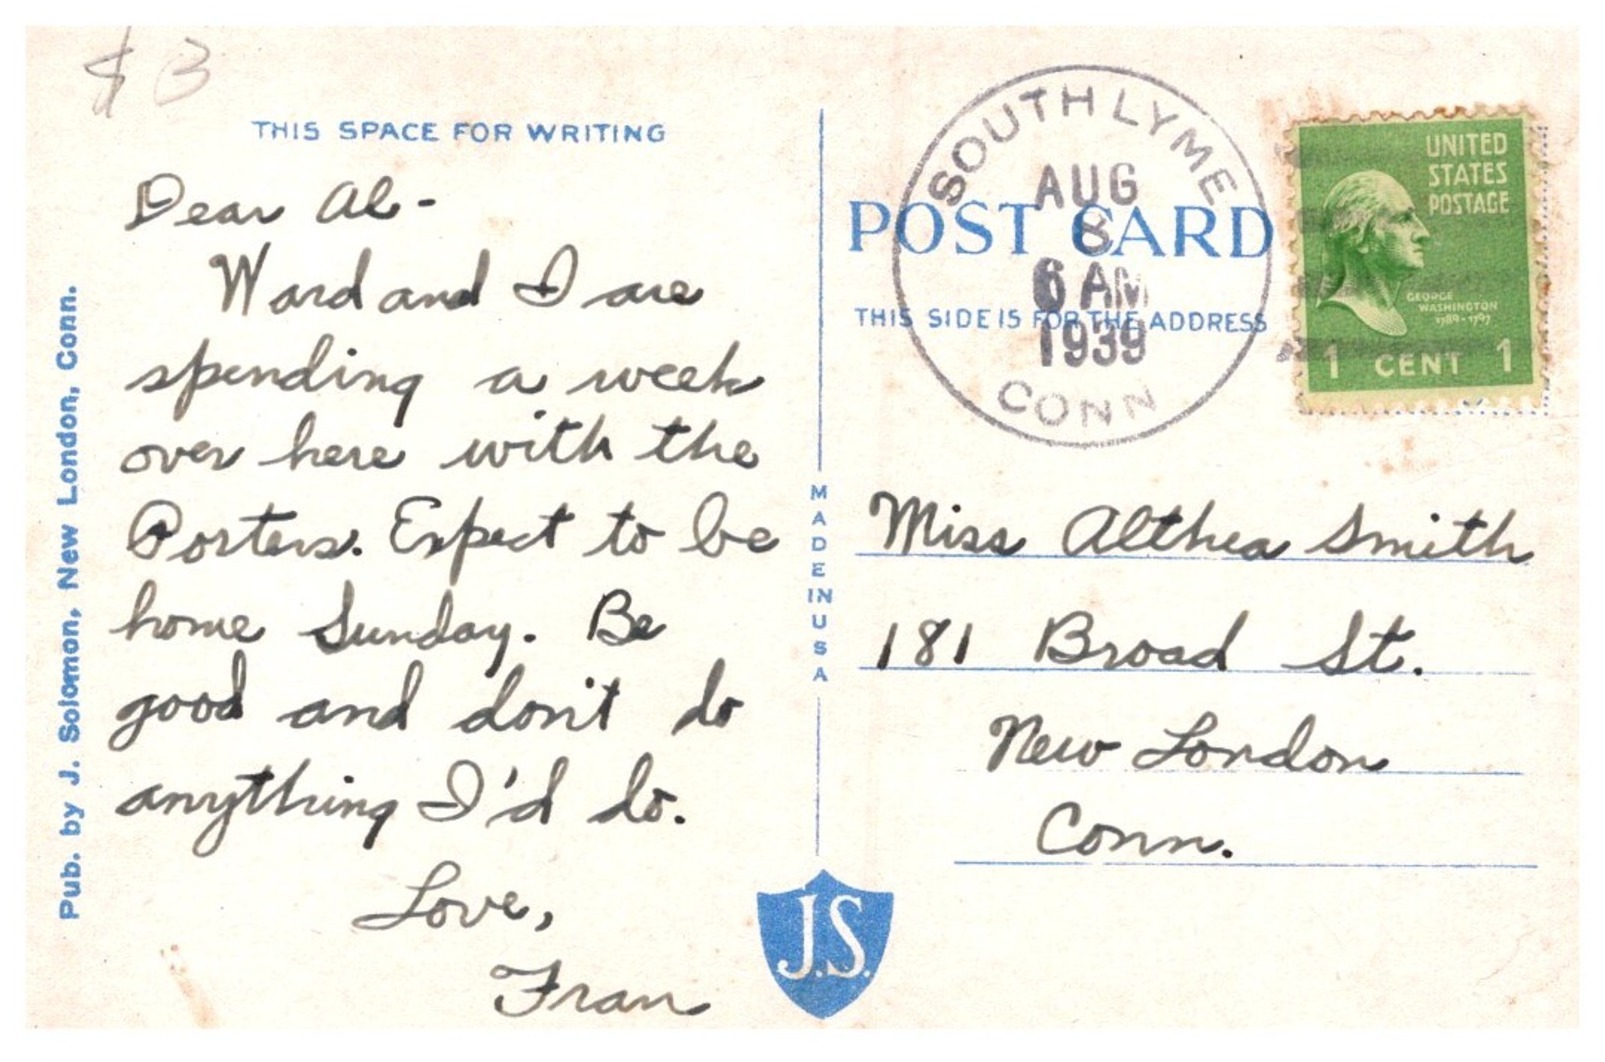 $3
THIS SPACE FOR WRITING
Dear Al-
Ward and I are
spending a week
over here with the
Porters. Expect to be
home Sunday. Be
good and don't do
anything I'd do.
Love,
Fran
Pub. by J. Solomon, New London, Conn.
MADE IN USA
J.S.
SOUTH LYME
AUG
8
6 AM
1939
CONN
POST CARD
THIS SIDE IS FOR THE ADDRESS
UNITED
STATES
POSTAGE
GEORGE
WASHINGTON
1789-1797
1 CENT 1
Miss Althea Smith
181 Broad St.
New London
Conn.